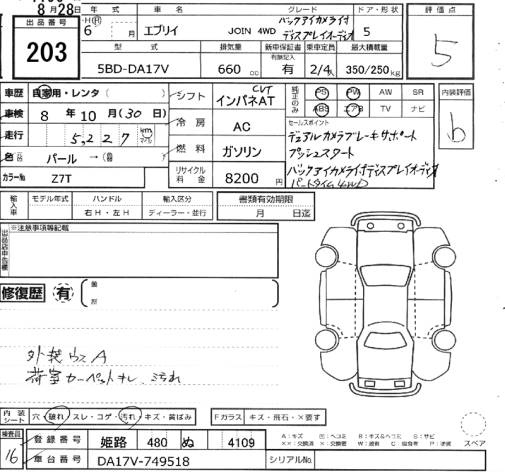 8月28日
出品番号
203
年式
H R
6 月
車名
エブリイ
グレード
JOIN 4WD
バックアイカメラ付
ディスプレイオーディオ
ドア・形状
5
評価点
5
型式
5BD-DA17V
排気量
660 cc
新車保証書
有無記入
有
乗車定員
2/4人
最大積載量
350/250kg
車歴 自家用・レンタ( )
車検 8年10月(30日)
走行 5,227 km マイル
色 パール → ( )
カラーNo Z7T
シフト
CVT
インパネAT
冷房 AC
燃料 ガソリン
リサイクル料金 8200円
純正のみ
PS PW AW SR
ABS エアB TV ナビ
内装評価
b
セールスポイント
デュアルカメラブレーキサポート
プッシュスタート
バックアイカメラ付ディスプレイオーディオ
パートタイム4WD
輸入車
モデル年式
ハンドル
右H・左H
輸入区分
ディーラー・並行
書類有効期限
月 日迄
※注意事項等記載
出品店申告欄
修復歴 有
箇所
外装ウスA
荷室カーペットキレ 汚れ
内装シート 穴・破れ・スレ・コゲ・汚れ・キズ・黄ばみ
Fガラス キズ・飛石・×要す
スペア
検査員
16
登録番号 姫路 480 ぬ 4109
車台番号 DA17V-749518
シリアルNo.